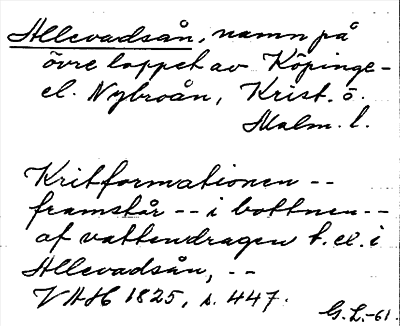 Allevadsån, namn på
övre loppet av Köpinge-
el. Nybroån, Krist. o.
Malm. l.
Kritformationen --
framstår -- i bottnen --
af vattendragen t. ex. i
Allevadsån, --
VAH 1825, s. 447.
G. L. -61.